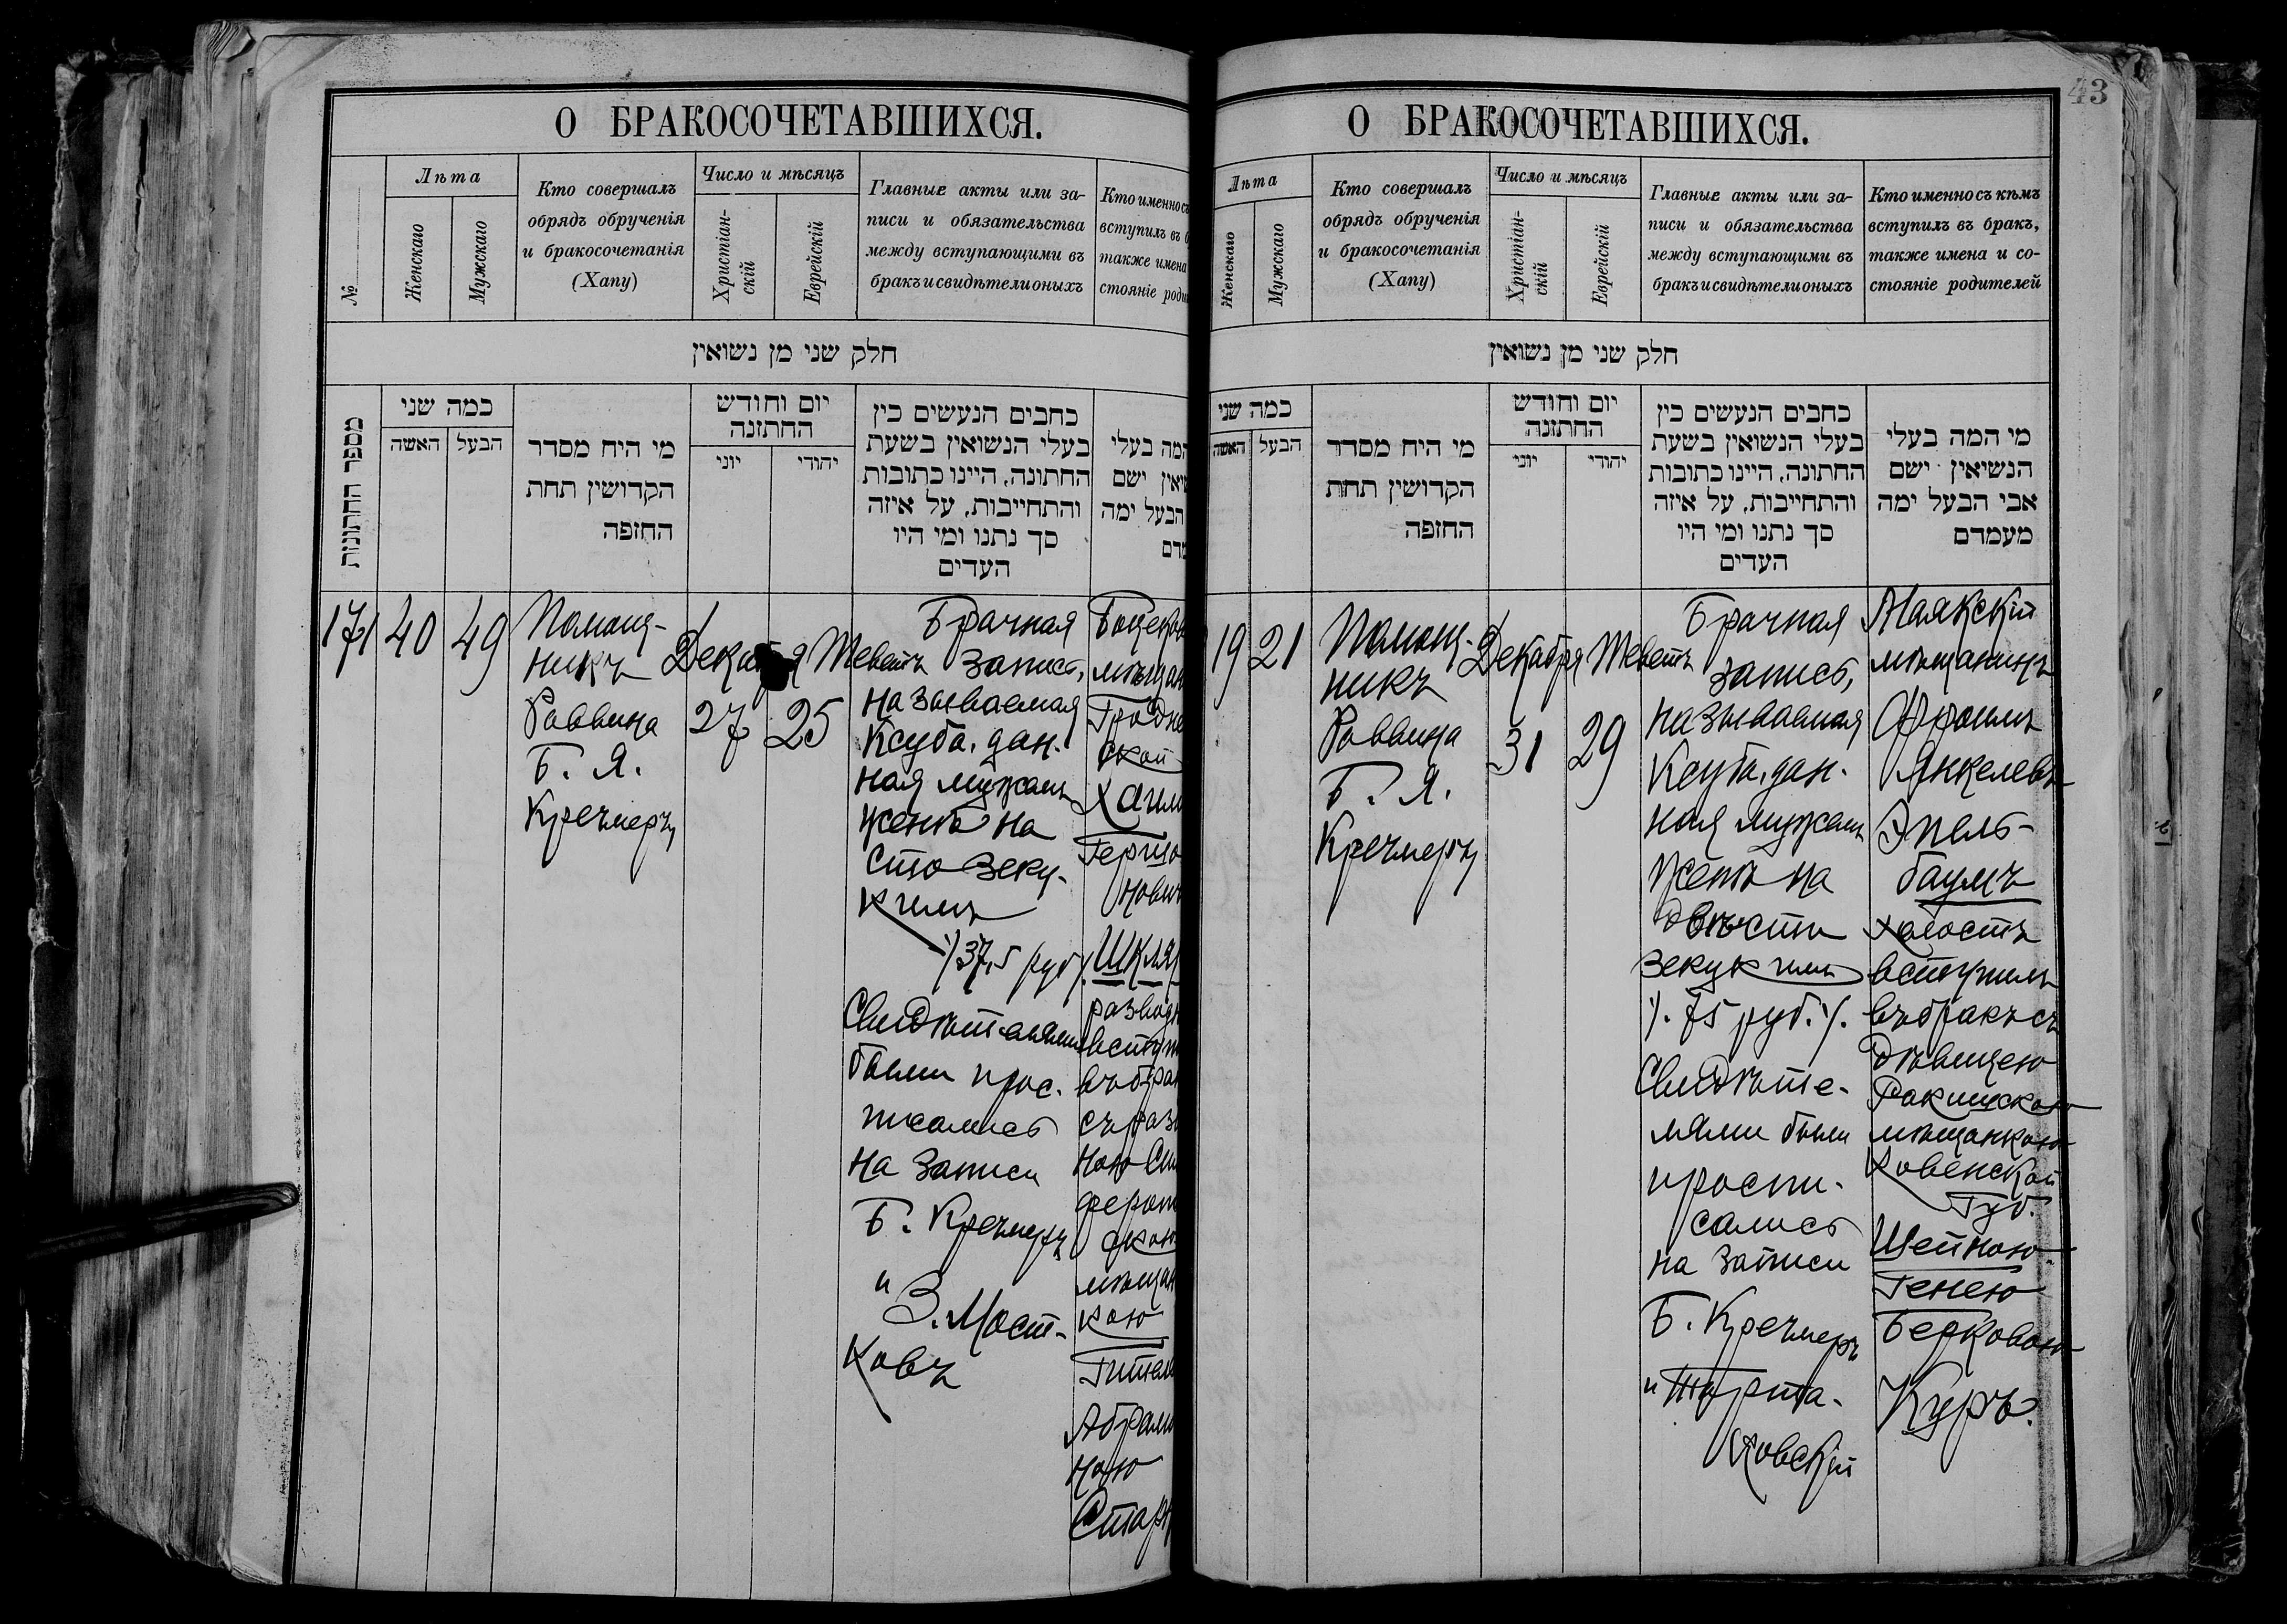 О БРАКОСОЧЕТАВШИХСЯ.
№
Лѣта
Женскаго
Мужскаго
Кто совершалъ
обрядъ обрученія
и бракосочетанія
(Хапу)
Число и мѣсяцъ
Христіан-
скій
Еврейскій
Главные акты или за-
писи и обязательства
между вступающими въ
бракъ и свидѣтели оныхъ
Кто именно съ
вступилъ въ б
также имена
стояніе роди
חלק שני מן נשואין
מספר החתונות
כמה שני
האשה
הבעל
מי היח מסדר
הקדושין תחת
החופה
יום וחודש
החתונה
יוני
יהודי
כחבים הנעשים כין
בעלי הנשואין בשעת
החתונה, היינו כתובות
והתחייבות, על איזה
סך נתנו ומי היו
העדים
המה בעלי
שיאין ישם
הבעל ימה
מדם
171
40
49
Помощ-
никъ
Раввина
Б. Я.
Кречмеръ
Декабря
27
Теветъ
25
Брачная
запись,
называемая
Ксуба, дан-
ная мужемъ
женѣ на
сто зеку-
кимъ
·/. 37,5 руб ·/.
Свидѣтелями
были и рос-
писались
на записи
Б. Кречмеръ
и
З. Мост-
ковъ
мѣщан
Гродне
ской
Хаим
Гершо
нович
Шкля
развод
вступ
въ бра
съ разв
ною Си
фероп
скою
мѣщан
кою
Гител
Абрам
ною
Старк
43
О БРАКОСОЧЕТАВШИХСЯ.
Лѣта
Женскаго
Мужскаго
Кто совершалъ
обрядъ обрученія
и бракосочетанія
(Хапу)
Число и мѣсяцъ
Христіан-
скій
Еврейскій
Главные акты или за-
писи и обязательства
между вступающими въ
бракъ и свидѣтели оныхъ
Кто именно съ кѣмъ
вступилъ въ бракъ,
также имена и со-
стояніе родителей
חלק שני מן נשואין
כמה שני
האשה
הבעל
מי היח מסדר
הקדושין תחת
החופה
יום וחודש
החתונה
יוני
יהודי
כחבים הנעשים כין
בעלי הנשואין בשעת
החתונה, היינו כתובות
והתחייבות, על איזה
סך נתנו ומי היו
העדים
מי המה בעלי
הנשיאין ישם
אבי הבעל ימה
מעמדם
19
21
Помощ-
никъ
Раввина
Б. Я.
Кречмеръ
Декабря
31
Теветъ
29
Брачная
запись,
называемая
Ксуба, дан-
ная мужемъ
женѣ на
двѣсти
зекукимъ
·/. 75 руб. ·/.
Свидѣте-
лями были
и роспи-
сались
на записи
Б. Кречмеръ
ковскій
Маякскій
мѣщанинъ
Фроимъ
Янкелевъ
Эпель-
баумъ
холостъ
вступилъ
въ бракъ съ
дѣвицею
Ракишскою
мѣщанкою
Ковенской
Губ.
Шейною
Генею
Берковою
Куръ.